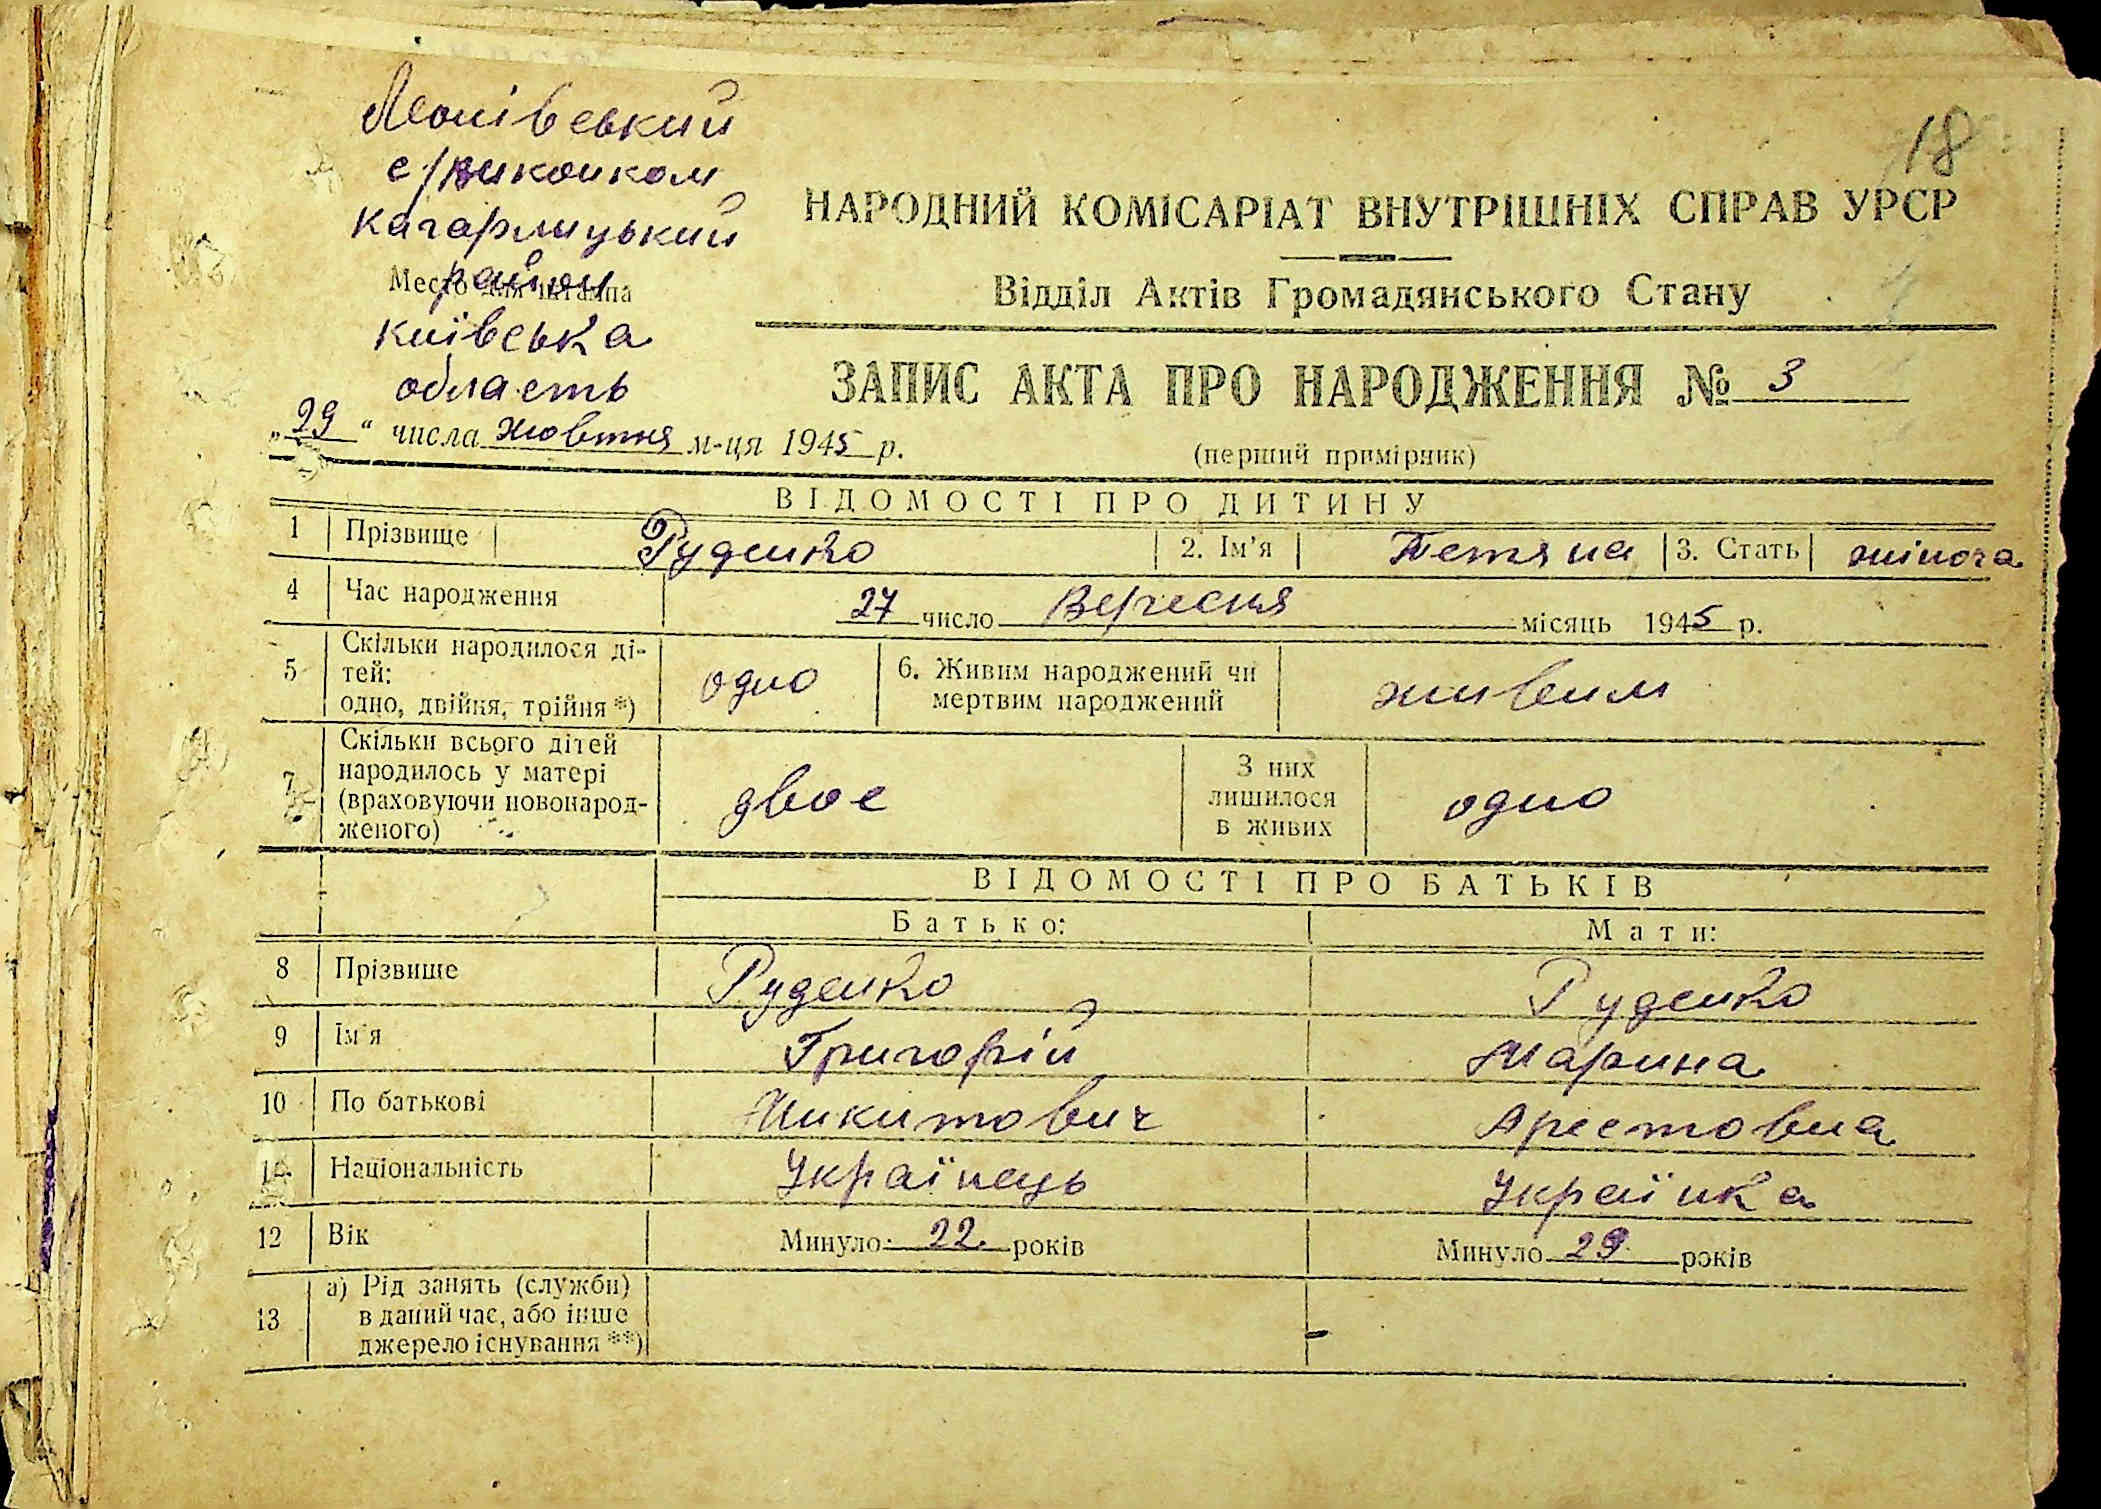 18
с/виконком
Кагарлицький
район
Место для штампа
Київська
область
НАРОДНИЙ КОМІСАРІАТ ВНУТРІШНІХ СПРАВ УРСР
Відділ Актів Громадянського Стану
ЗАПИС АКТА ПРО НАРОДЖЕННЯ № 3
„29“ числа жовтня м-ця 1945 р.
(перший примірник)
ВІДОМОСТІ ПРО ДИТИНУ
1 Прізвище Руденко 2. Ім'я Тетяна 3. Стать жіноча
4 Час народження 27 число Вересня місяць 1945 р.
5 Скільки народилося ді-
тей:
одно, двійня, трійня *) одно 6. Живим народжений чи
мертвим народжений живим
7 Скільки всього дітей
народилось у матері
(враховуючи новонарод-
женого) двое З них
лишилося
в живих одно
ВІДОМОСТІ ПРО БАТЬКІВ
Батько: Мати:
8 Прізвище Руденко Руденко
9 Ім'я Григорій Марина
10 По батькові Никитович Арестовна
11 Національність Українець Українка
12 Вік Минуло 22 років Минуло 29 років
13 а) Рід занять (служби)
в даний час, або інше
джерело існування **)